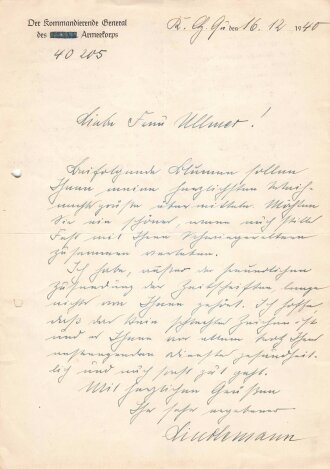 Der Kommandierende General
des Armeekorps
40 205
K. G. Qu den 16. 12 1940
Liebe Frau Ullmer!
Beifolgende Blumen sollen
Ihnen meine herzlichsten Weih-
nachtsgrüsse übermitteln. Möchten
Sie ein schönes, wenn auch stilles
Fest mit Ihren Schwiegereltern
zusammen verleben.
Ich habe, ausser der freundlichen
Zusendung der Zeitschriften, lange
nichts von Ihnen gehört. Ich hoffe
daß das kein schlechtes Zeichen ist
und es Ihnen vor allem trotz Ihres
anstrengenden Dienstes gesundheit-
lich und auch sonst gut geht.
Mit herzlichen Grüßen
Ihr sehr ergebener
Lindemann